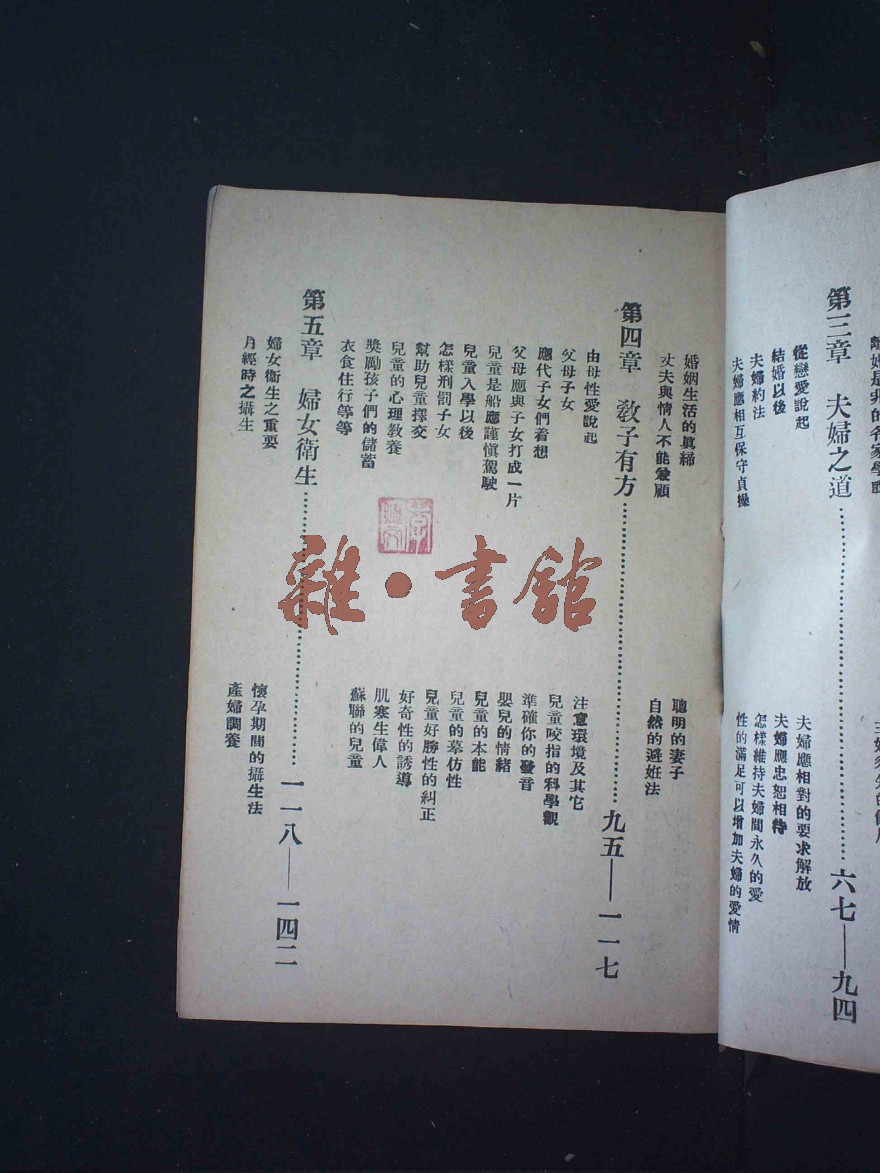 離婚是非的各家學
第三章 夫婦之道……六七——九四
從戀愛說起
結婚以後
夫婦約法
夫婦應相互保守貞操
夫婦應相對的要求解放
夫婦應忠恕相待
怎樣維持夫婦間永久的愛
性的滿足可以增加夫婦的愛情
婚姻生活的眞締
丈夫與情人不能兼顧
聰明的妻子
自然的避妊法
第四章 敎子有方……九五——一一七
由母性愛說起
父母子女
應代子女們着想
父母應與子女打成一片
兒童是船應謹愼駕駛
兒童入學以後
怎樣刑罰子女
幫助兒童擇交
兒童的心理敎養
獎勵孩子們的儲蓄
衣食住行等等
注意環境及其它
兒童咬指的科學觀
準確你的發音
嬰兒的情緒
兒童的本能
兒童的摹仿性
兒童好勝性的糾正
好奇性的誘導
肌寒生偉人
蘇聯的兒童
第五章 婦女衛生……一一八——一四二
婦女衛生之重要
月經時之攝生
懷孕期間的攝生法
產婦調養
雜·書館